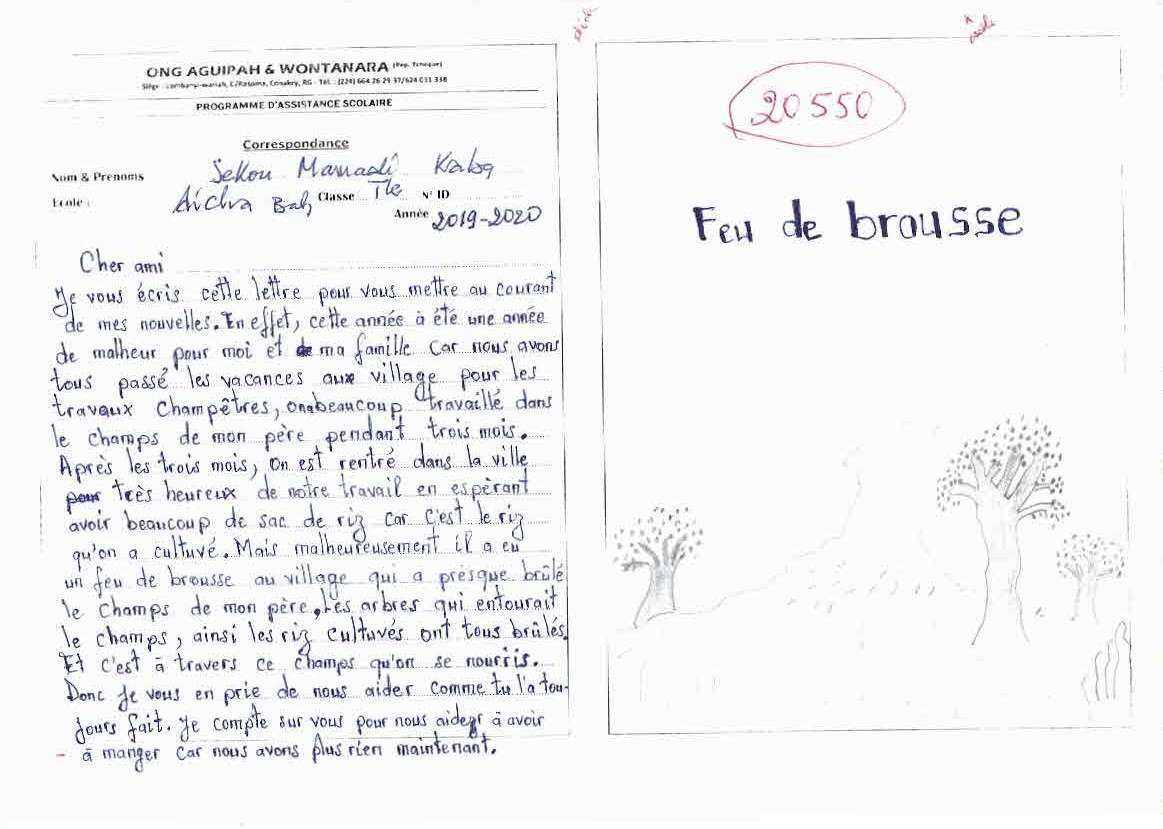 ONG AGUIPAH & WONTANARA (Rep. Tcheque)
Siège : Lambanyi-wariah, C/Ratoma, Conakry, RG - Tel. : (224) 664 26 29 37/624 011 338
PROGRAMME D'ASSISTANCE SCOLAIRE
Correspondance
Nom & Prenoms Sekou Mamadi Kaba
Ecole : Aicha Bah Classe Tle N° ID
Année 2019-2020
Cher ami
Je vous écris cette lettre pour vous mettre au courant
de mes nouvelles. En effet, cette année à été une année
de malheur pour moi et de ma famille car nous avons
tous passé les vacances aux village pour les
travaux champêtres, on a beaucoup travaillé dans
le champs de mon père pendant trois mois.
Après les trois mois, on est rentré dans la ville
pour très heureux de notre travail en espèrant
avoir beaucoup de sac de riz car c'est le riz
qu'on a cultuvé. Mais malheureusement il a eu
un feu de brousse au village qui a presque brûlé
le champs de mon père, Les arbres qui entourait
le champs, ainsi les riz cultuvés ont tous brûlés.
Et c'est à travers ce champs qu'on se nourris.
Donc je vous en prie de nous aider comme tu l'a tou-
jours fait. Je compte sur vous pour nous aider à avoir
- à manger car nous avons plus rien maintenant.
20 550
Feu de brousse